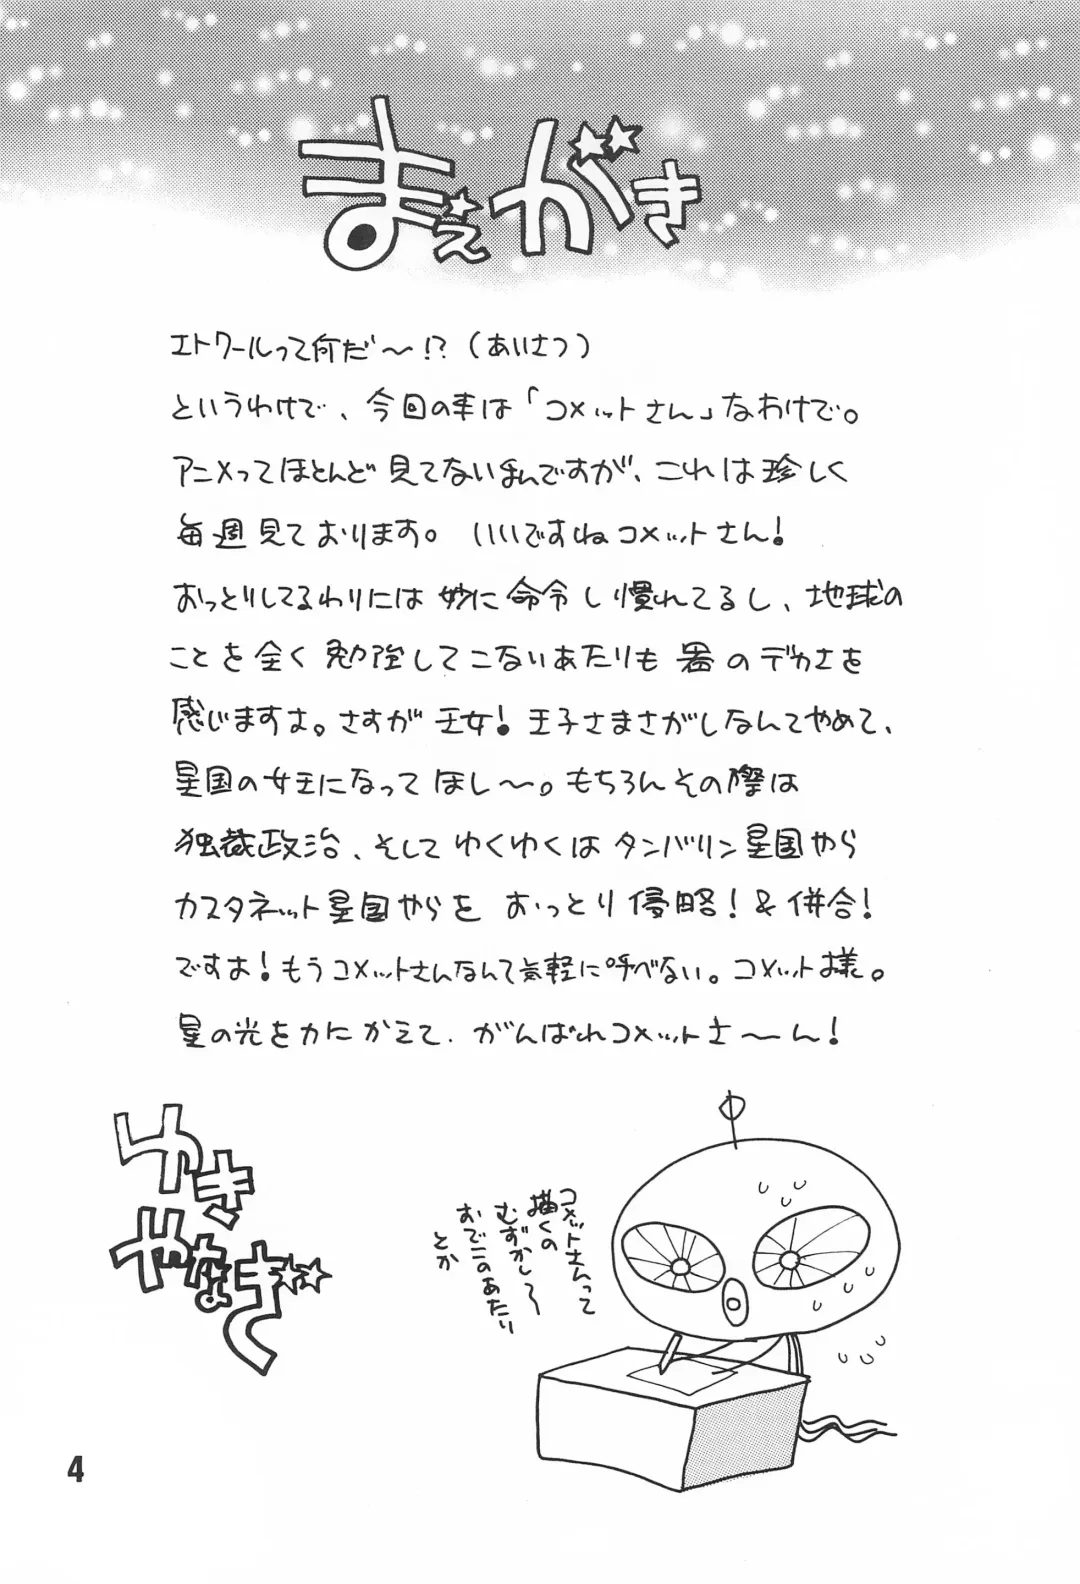 まえがき
エトワールって何だ〜!?(あいさつ)
というわけで、今回の本は「コメットさん」なわけで。
アニメってほとんど見てないほんですが、これは珍しく
毎週見ております。 いいですねコメットさん!
おっとりしてるわりには妙に命令し慣れてるし、地球の
ことを全く勉強してこないあたりも器のデカさを
感じますよ。さすが王女! 王子さまさがしなんてやめて、
星国の女王になってほし〜。もちろんその際は
独裁政治、そしてゆくゆくはタンバリン星国やら
カスタネット星国やらをおっとり侵略!&併合!
ですよ!もうコメットさんなんて気軽に呼べない。コメット様。
星の光を力にかえて、がんばれコメットさ〜ん!
ゆき
やなぎ
コメットさんって
描くの
むずかし〜
おでこのあたり
とか
4